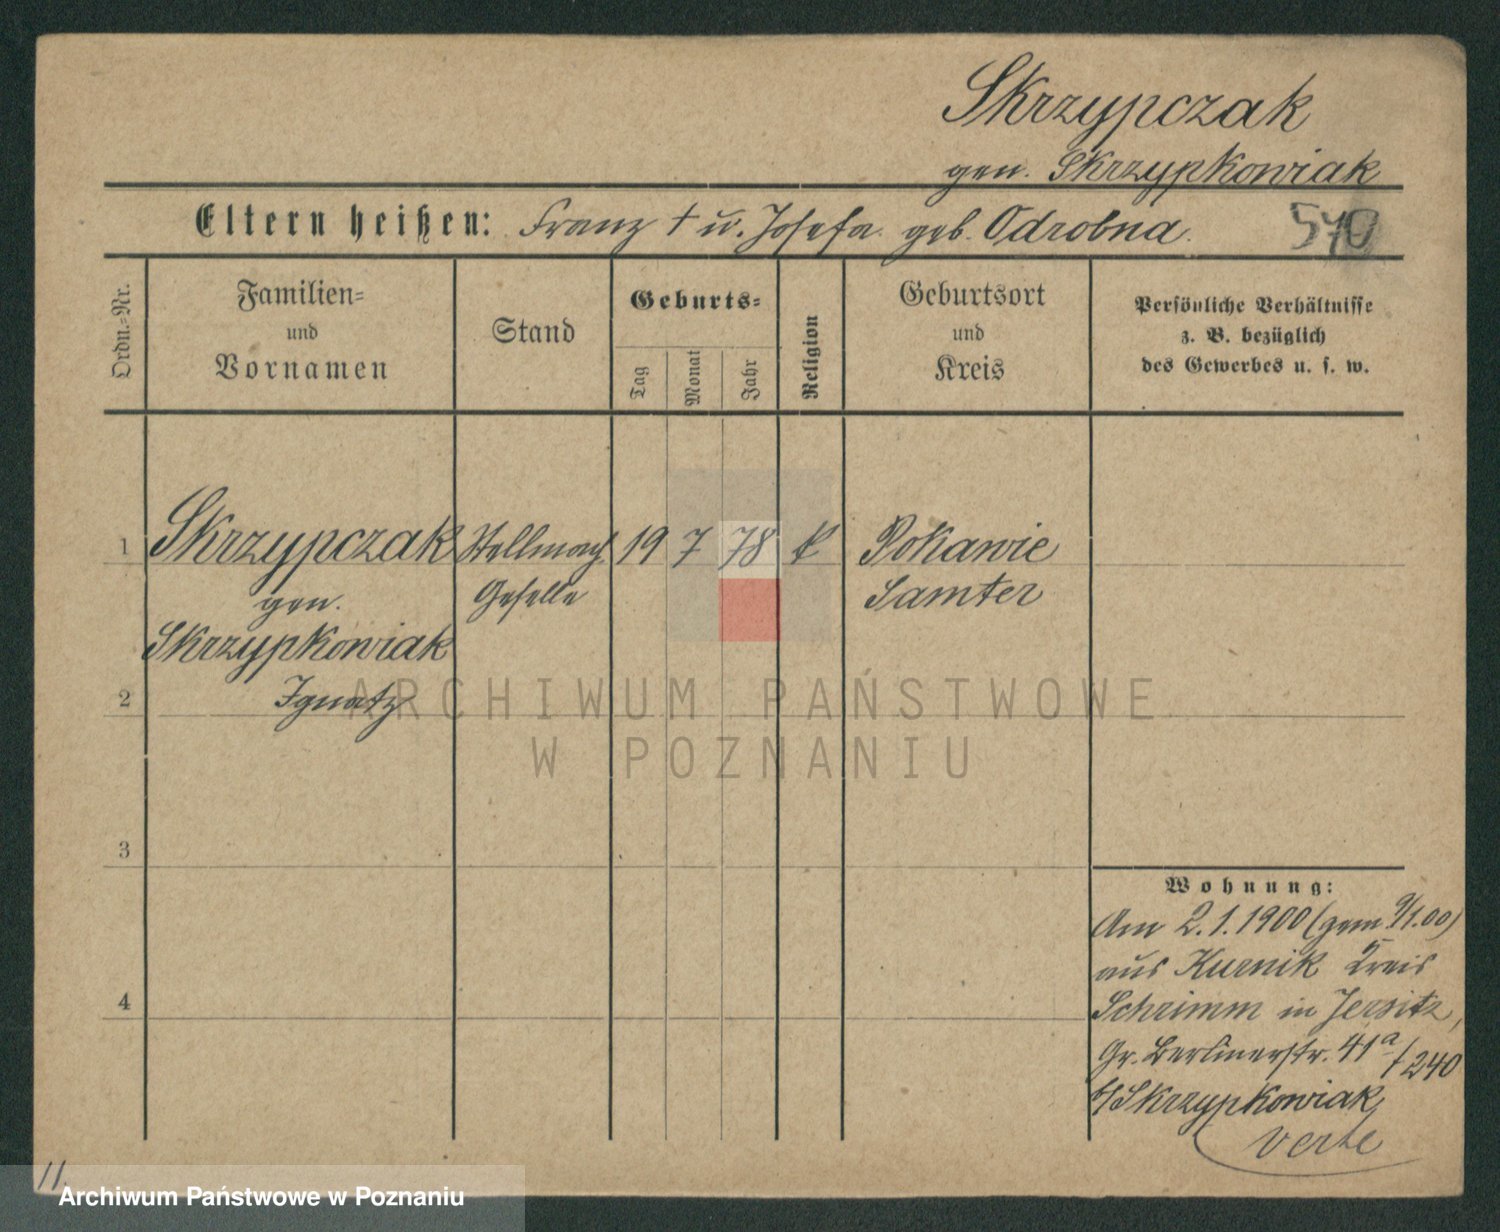 Skrzypczak
gen. Skrzypkowiak
Eltern heißen: Franz † u. Josefa geb. Odrobna.
540
Ordn.-Nr.
Familien-
und
Vornamen
Stand
Geburts-
Tag
Monat
Jahr
Religion
Geburtsort
und
Kreis
Persönliche Verhältnisse
z. B. bezüglich
des Gewerbes u. s. w.
1 Skrzypczak Stellmach. 19 7 78 k Pokawie
gen. Geselle Samter
Skrzypkowiak
2 Ignatz
ARCHIWUM PAŃSTWOWE
W POZNANIU
3
4
Wohnung:
Am 2.1.1900 (gem. 9/1.00)
aus Kurnik Kreis
Schrimm in Jersitz,
Gr. Berlinerstr. 41a/240
b/Skrzypkowiak
verte
11.
Archiwum Państwowe w Poznaniu